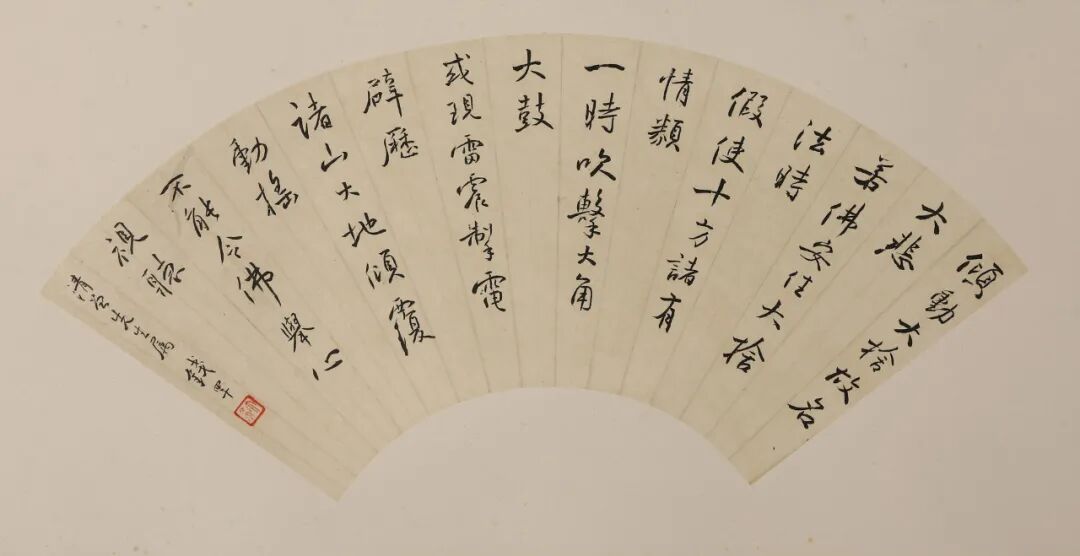 傾動大捨故名
大悲
若佛安住大捨
法時
假使十方諸有
情類
一時吹擊大角
大鼓
或現雷震掣電
礔歷
諸山大地傾覆
動搖
不能令佛舉心
視聽
清先生属
錢罕